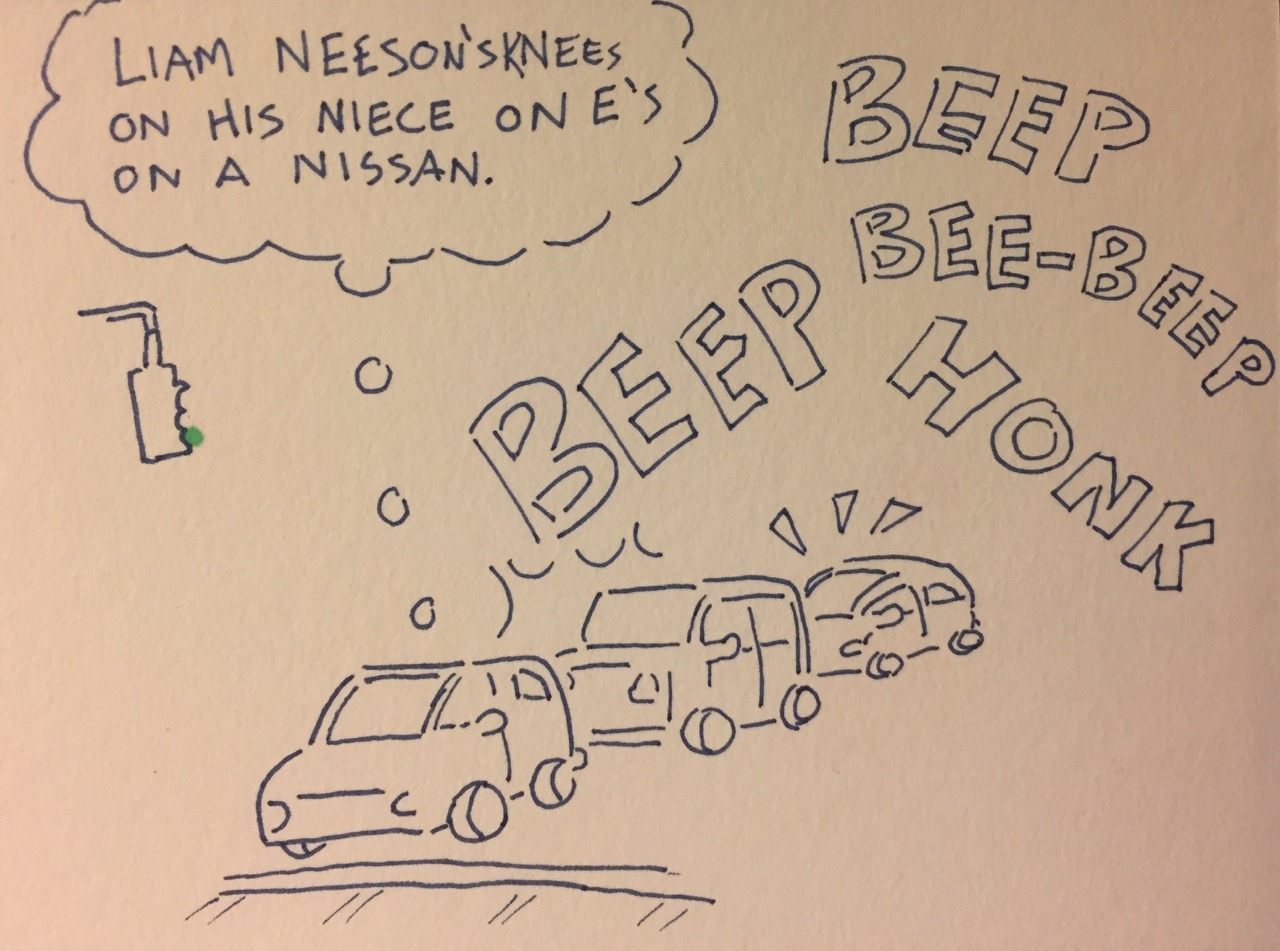 LIAM NEESON'S KNEES
ON HIS NIECE ON E'S
ON A NISSAN.
BEEP
BEE-BEEP
BEEP
HONK